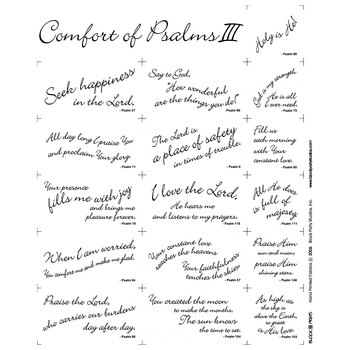 Comfort of Psalms III
Holy is He!
- Psalm 99
Seek happiness
in the Lord.
- Psalm 37
Say to God,
"How wonderful
are the things you do!"
- Psalm 66
God is my strength
He is all
I ever need.
- Psalm 73
All day long I praise You
and proclaim Your glory.
- Psalm 71
The Lord is
a place of safety
in times of trouble.
- Psalm 9
Fill us
each morning
with Your
constant love.
- Psalm 90
Your presence
fills me with joy
and brings me
pleasure forever.
- Psalm 16
I love the Lord,
He hears me
and listens to my prayers.
- Psalm 116
All He does
is full of
majesty
- Psalm 111
When I am worried,
You comfort me and make me glad.
- Psalm 94
Your constant love
reaches the heavens
Your faithfulness
touches the skies
Praise Him
sun and moon
praise Him
shining stars.
Praise the Lord,
who carries our burdens
day after day.
- Psalm 68
You created the moon
to make the months.
The sun knows
the time to set.
As high as
the sky is
above the Earth,
so great
is His love.
- Psalm 103